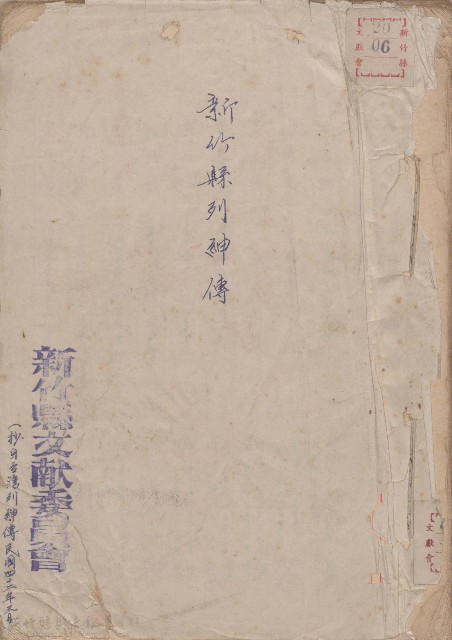 新竹縣
文獻會
20
06
新竹縣列紳傳
新竹縣文献委員會
抄自台灣列紳傳民國四二年
文獻會